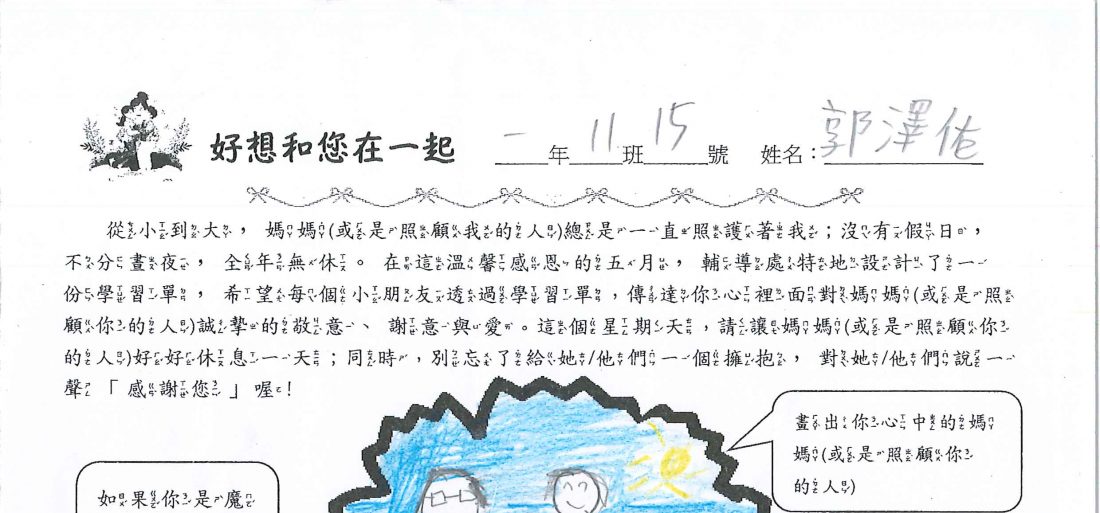 好想和您在一起 一年11班15號 姓名：郭澤佑
從小到大，媽媽(或是照顧我的人)總是一直照護著我；沒有假日，
不分晝夜，全年無休。在這溫馨感恩的五月，輔導處特地設計了一
份學習單，希望每個小朋友透過學習單，傳達你心裡面對媽媽(或是照
顧你的人)誠摯的敬意、謝意與愛。這個星期天，請讓媽媽(或是照顧你
的人)好好休息一天；同時，別忘了給她/他們一個擁抱，對她/他們說一
聲「感謝您」喔！
畫出你心中的媽
媽(或是照顧你
的人)
如果你是魔